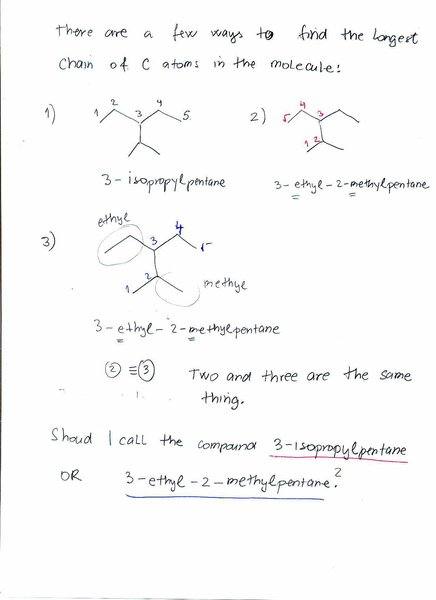 there are a few ways to find the longest
chain of C atoms in the molecule:
1)
1 2 3 4 5
3-isopropylpentane
2)
5 4 3 2 1
3-ethyl-2-methylpentane
3)
ethyl
1 2 3 4 5
methyl
3-ethyl-2-methylpentane
② ≡ ③ Two and three are the same
thing.
Shoud I call the compound 3-isopropylpentane
OR 3-ethyl-2-methylpentane?